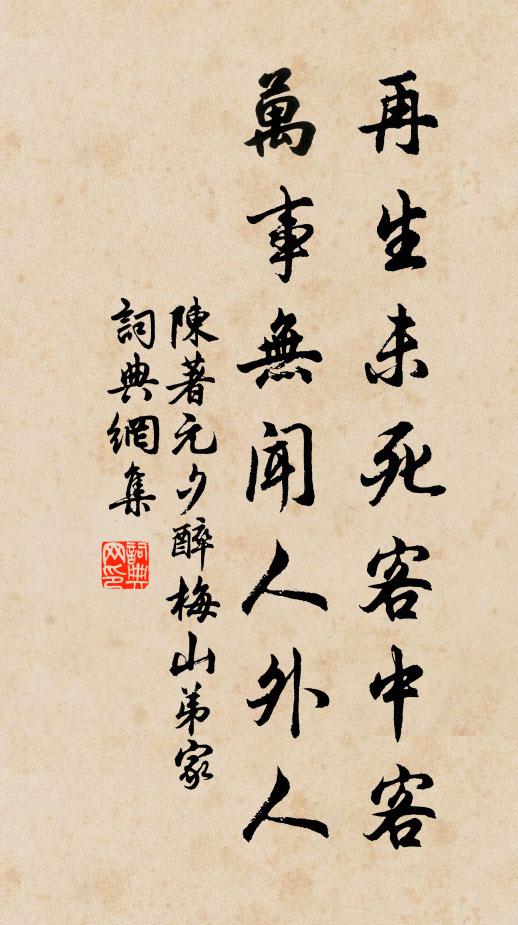 再生未死客中客
萬事無聞人外人
陳著元夕醉梅山弟家
詞典網集
詞典網印